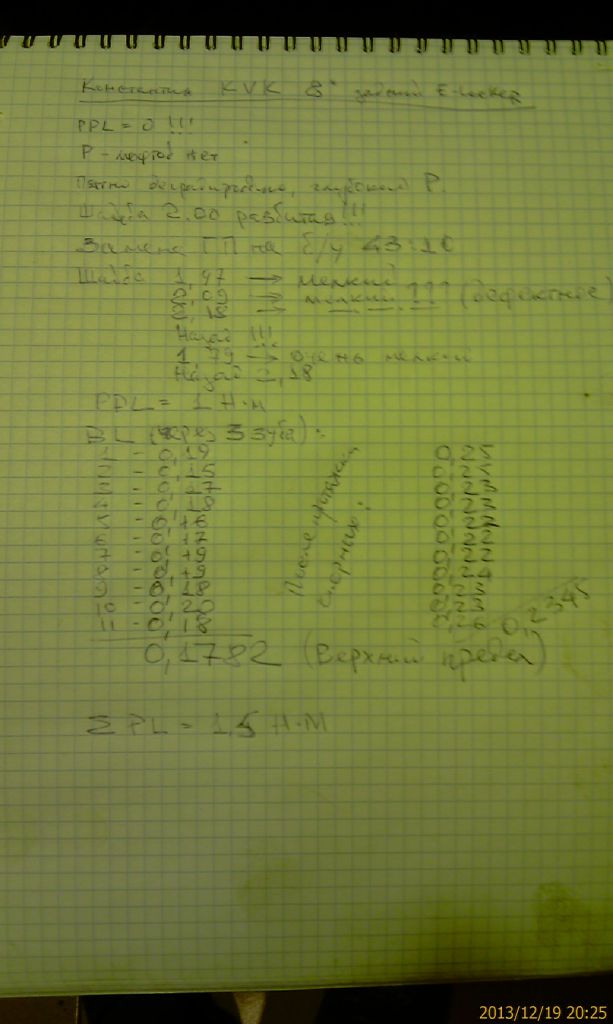 Константин KVK 8" задний E-locker
PPL = 0 !!!
Р - меток нет
Пятно деградировано, глубокий Р.
Шайба 2.00 разбитая!!!
Замена ГП на б/у 43:10
Шайба 1,97 → мелкий
2,09 → мелкий !!! (дефектное)
2,18 →
Назад !!!
1,79 → очень мелкий
Назад 2,18
PPL = 1 Н·м
BL (через 3 зуба):
1 - 0,19 0,25
2 - 0,15 0,25
3 - 0,17 0,23
4 - 0,18 0,23
5 - 0,16 0,22
6 - 0,17 0,22
7 - 0,19 0,22
8 - 0,19 0,24
9 - 0,18 0,23
10 - 0,20 0,23
11 - 0,18 0,26
После
0,2345
0,1782 (Верхний предел)
Σ PL = 1,5 Н·М
2013/12/19 20:25